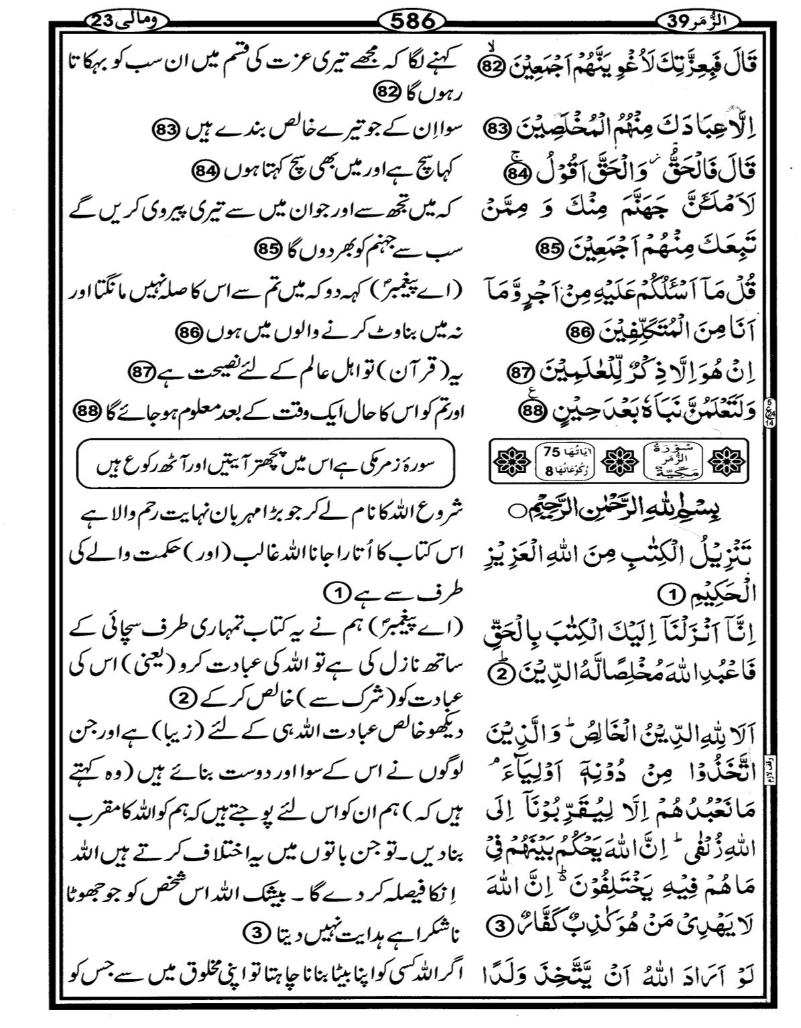 الزُّمَر 39
586
ومالی 23
قَالَ فَبِعِزَّتِكَ لَاُغْوِيَنَّهُمْ اَجْمَعِيْنَ 82
اِلَّا عِبَادَكَ مِنْهُمُ الْمُخْلَصِيْنَ 83
قَالَ فَالْحَقُّ وَالْحَقَّ اَقُوْلُ 84
لَاَمْلَـَٔنَّ جَهَنَّمَ مِنْكَ وَ مِمَّنْ
تَبِعَكَ مِنْهُمْ اَجْمَعِيْنَ 85
قُلْ مَاۤ اَسْـَٔلُكُمْ عَلَيْهِ مِنْ اَجْرٍ وَّمَاۤ
اَنَا مِنَ الْمُتَكَلِّفِيْنَ 86
اِنْ هُوَ اِلَّا ذِكْرٌ لِّلْعٰلَمِيْنَ 87
وَلَتَعْلَمُنَّ نَبَاَهٗ بَعْدَ حِيْنٍ 88
سُوْرَةُ الزُّمَرِ مَكِّيَّةٌ
اٰيَاتُهَا 75
رُكُوْعَاتُهَا 8
بِسْمِ اللهِ الرَّحْمٰنِ الرَّحِيْمِ
تَنْزِيْلُ الْكِتٰبِ مِنَ اللهِ الْعَزِيْزِ
الْحَكِيْمِ 1
اِنَّاۤ اَنْزَلْنَاۤ اِلَيْكَ الْكِتٰبَ بِالْحَقِّ
فَاعْبُدِ اللهَ مُخْلِصًا لَّهُ الدِّيْنَ 2
اَلَا لِلّٰهِ الدِّيْنُ الْخَالِصُ ؕ وَالَّذِيْنَ
اتَّخَذُوْا مِنْ دُوْنِهٖۤ اَوْلِيَآءَ ۘ
مَا نَعْبُدُهُمْ اِلَّا لِيُقَرِّبُوْنَاۤ اِلَى
اللهِ زُلْفٰى ؕ اِنَّ اللهَ يَحْكُمُ بَيْنَهُمْ فِيْ
مَا هُمْ فِيْهِ يَخْتَلِفُوْنَ ؕ اِنَّ اللهَ
لَا يَهْدِيْ مَنْ هُوَ كٰذِبٌ كَفَّارٌ 3
لَوْ اَرَادَ اللهُ اَنْ يَّتَّخِذَ وَلَدًا
کہنے لگا کہ مجھے تیری عزت کی قسم میں ان سب کو بہکاتا
رہوں گا 82
سوا اِن کے جو تیرے خالص بندے ہیں 83
کہا سچ ہے اور میں بھی سچ کہتا ہوں 84
کہ میں تجھ سے اور جو ان میں سے تیری پیروی کریں گے
سب سے جہنم کو بھر دوں گا 85
(اے پیغمبرؐ) کہہ دو کہ میں تم سے اس کا صلہ نہیں مانگتا اور
نہ میں بناوٹ کرنے والوں میں ہوں 86
یہ (قرآن) تو اہل عالم کے لئے نصیحت ہے 87
اور تم کو اس کا حال ایک وقت کے بعد معلوم ہو جائے گا 88
سورۂ زمر مکی ہے اس میں پچھتر آیتیں اور آٹھ رکوع ہیں
شروع اللہ کا نام لے کر جو بڑا مہربان نہایت رحم والا ہے
اس کتاب کا اُتارا جانا اللہ غالب (اور) حکمت والے کی
طرف سے ہے 1
(اے پیغمبرؐ) ہم نے یہ کتاب تمہاری طرف سچائی کے
ساتھ نازل کی ہے تو اللہ کی عبادت کرو (یعنی) اس کی
عبادت کو (شرک سے) خالص کر کے 2
دیکھو خالص عبادت اللہ ہی کے لئے (زیبا) ہے اور جن
لوگوں نے اس کے سوا اور دوست بنائے ہیں (وہ کہتے
ہیں کہ) ہم ان کو اس لئے پوجتے ہیں کہ ہم کو اللہ کا مقرب
بنا دیں۔ تو جن باتوں میں یہ اختلاف کرتے ہیں اللہ
اِن کا فیصلہ کر دے گا۔ بیشک اللہ اس شخص کو جو جھوٹا
ناشکرا ہے ہدایت نہیں دیتا 3
اگر اللہ کسی کو اپنا بیٹا بنانا چاہتا تو اپنی مخلوق میں سے جس کو
وقف لازم